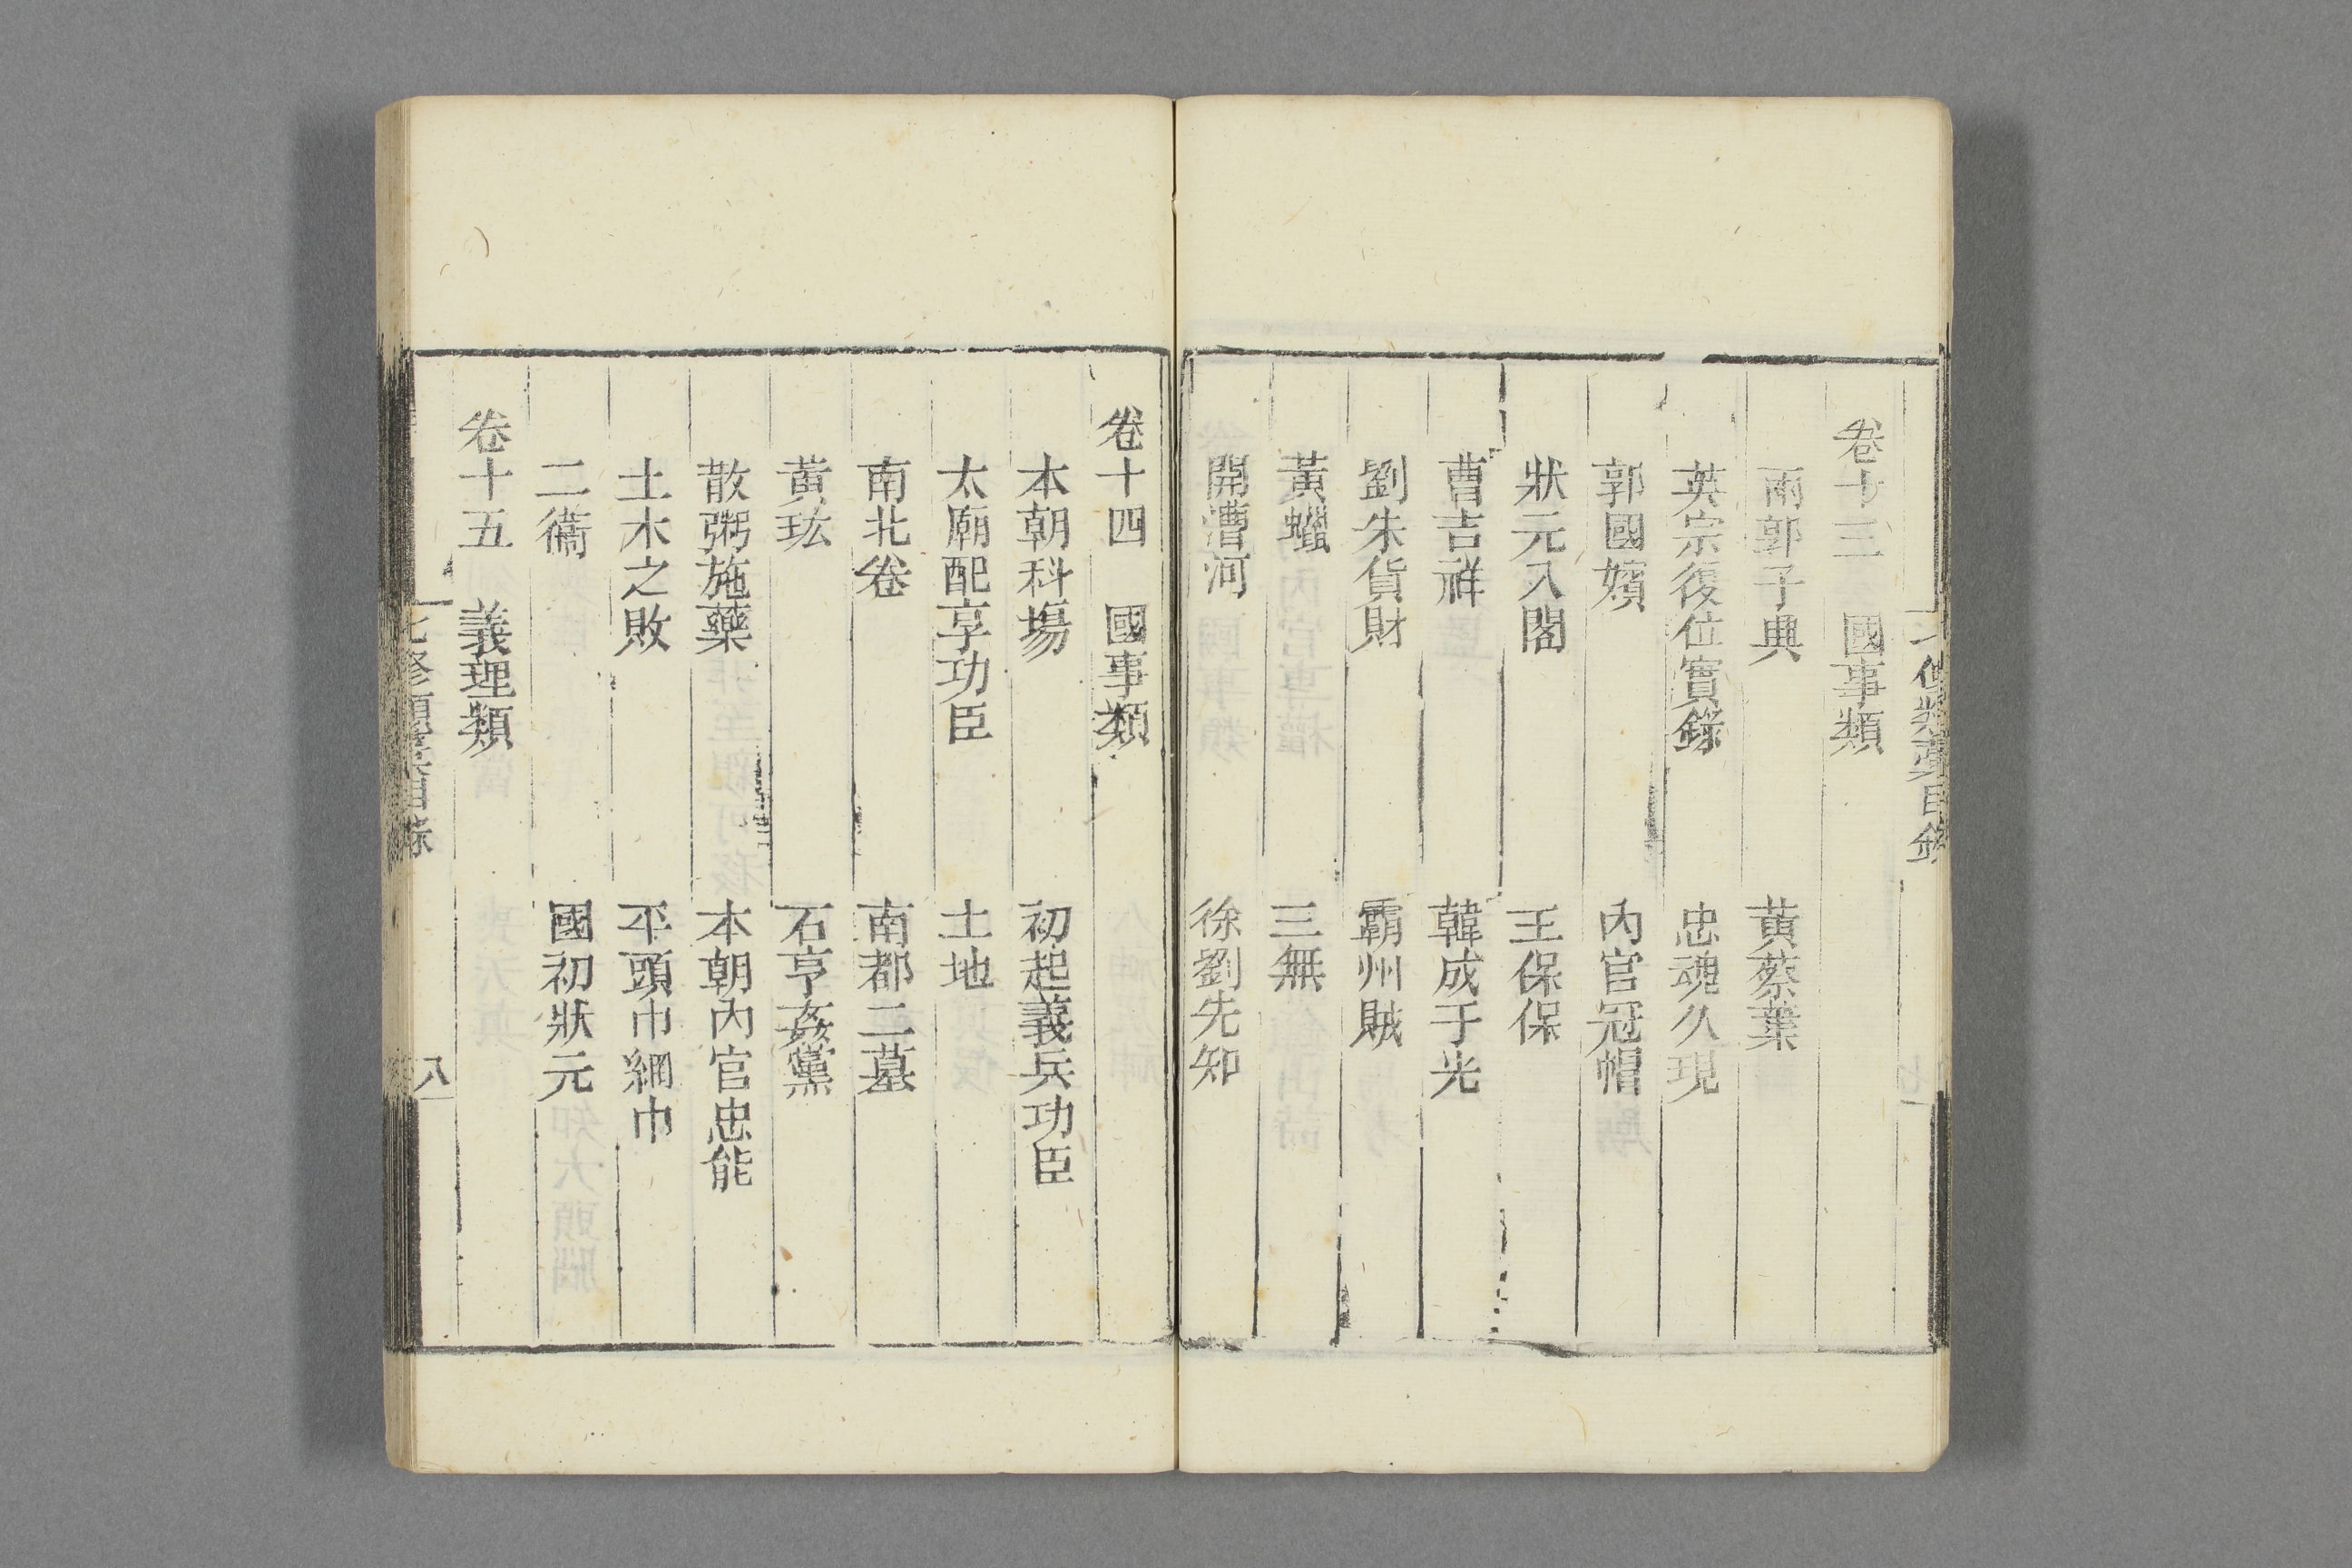 卷十三　國事類
兩郭子典　黃蔡葉
英宗復位實錄　忠魂久現
郭國嬪　內官冠帽
狀元入閣　王保保
曹吉祥　韓成于光
劉朱貨財　霸州賊
黃蠟　三無
開漕河　徐劉先知
卷十四　國事類
本朝科塲　初起義兵功臣
太廟配享功臣　土地
南北卷　南都二墓
黃玹　石亨姦黨
散粥施藥　本朝內官忠能
土木之敗　平頭巾網巾
二衞　國初狀元
卷十五　義理類
七修類藁目錄　八